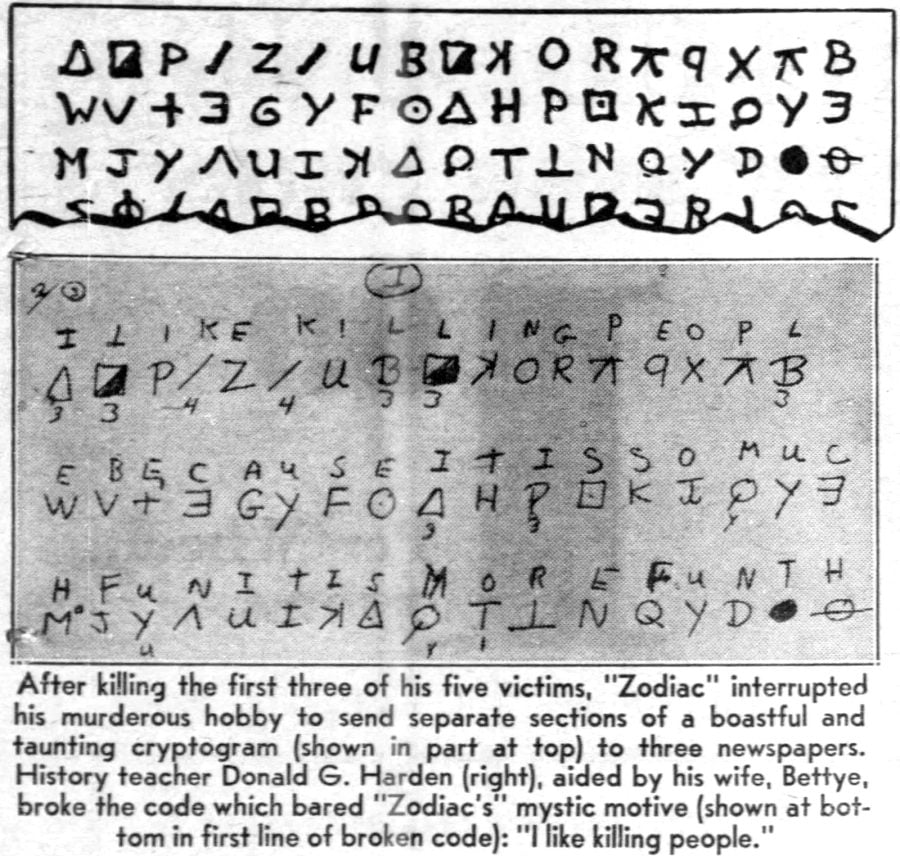 Δ ◪ P / Z / U B ◪ ꓘ O R ⥾ q X ⥾ B
W V + Ǝ G Y F ⊙ Δ H P ⊡ K I ϙ Y Ǝ
M J Y Λ U I ꓘ Δ ϙ T ⊥ N Q Y D ● ⊖
I
I L I K E K I L L I N G P E O P L
Δ ◪ P / Z / U B ◪ ꓘ O R ⥾ q X ⥾ B
3 3 4 4 3 3 3
E B E C A U S E I T I S S O M U C
W V + Ǝ G Y F ⊙ Δ H P ⊡ K I ϙ Y Ǝ
3 3
H F U N I T I S M O R E F U N T H
M J Y Λ U I ꓘ Δ ϙ T ⊥ N Q Y D ● ⊖
After killing the first three of his five victims, "Zodiac" interrupted
his murderous hobby to send separate sections of a boastful and
taunting cryptogram (shown in part at top) to three newspapers.
History teacher Donald G. Harden (right), aided by his wife, Bettye,
broke the code which bared "Zodiac's" mystic motive (shown at bot-
tom in first line of broken code): "I like killing people."